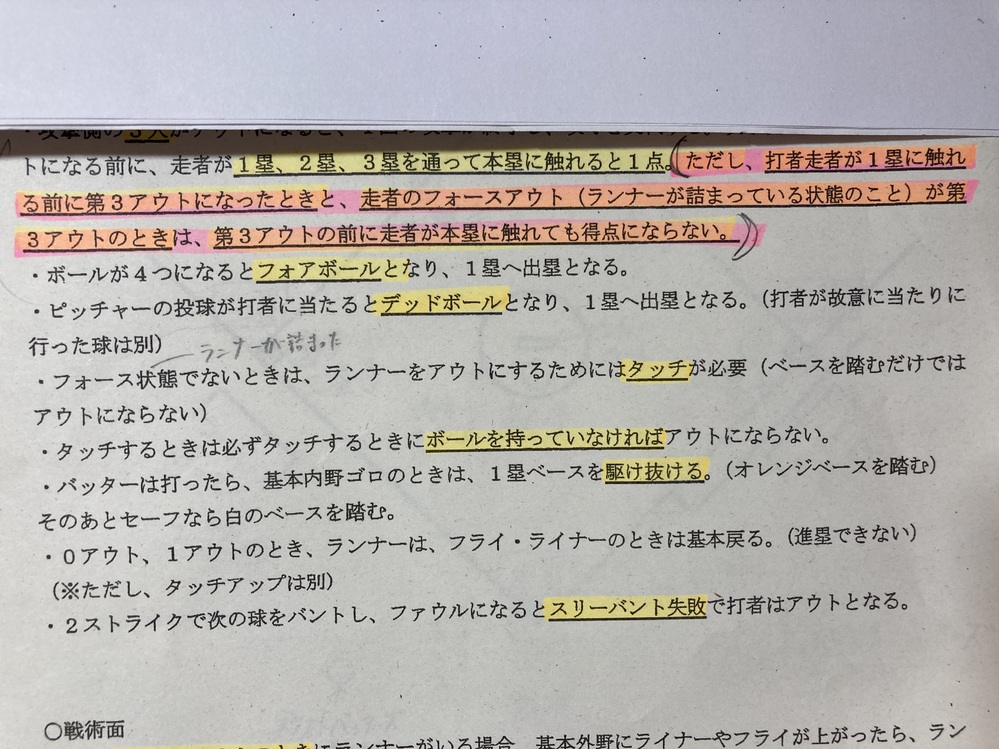 トになる前に、走者が１塁、２塁、３塁を通って本塁に触れると１点。（ただし、打者走者が１塁に触れ
る前に第３アウトになったときと、走者のフォースアウト（ランナーが詰まっている状態のこと）が第
３アウトのときは、第３アウトの前に走者が本塁に触れても得点にならない。）
・ボールが４つになるとフォアボールとなり、１塁へ出塁となる。
・ピッチャーの投球が打者に当たるとデッドボールとなり、１塁へ出塁となる。（打者が故意に当たりに
行った球は別）
ランナーが詰まった
・フォース状態でないときは、ランナーをアウトにするためにはタッチが必要（ベースを踏むだけでは
アウトにならない）
・タッチするときは必ずタッチするときにボールを持っていなければアウトにならない。
・バッターは打ったら、基本内野ゴロのときは、１塁ベースを駆け抜ける。（オレンジベースを踏む）
そのあとセーフなら白のベースを踏む。
・０アウト、１アウトのとき、ランナーは、フライ・ライナーのときは基本戻る。（進塁できない）
（※ただし、タッチアップは別）
・２ストライクで次の球をバントし、ファウルになるとスリーバント失敗で打者はアウトとなる。
○戦術面
にランナーがいる場合、基本外野にライナーやフライが上がったら、ラン